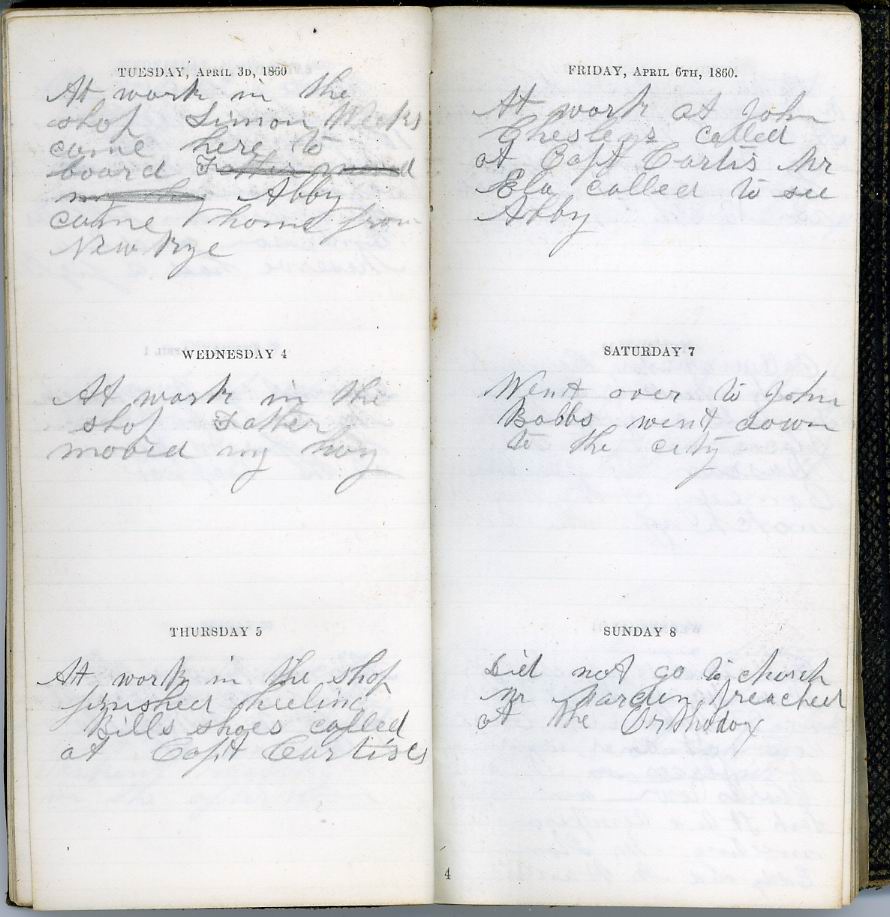 TUESDAY, APRIL 3D, 1860
At work in the
shop Simon Weeks
came here to
board Father moved
Abby
came home from
New Rye
WEDNESDAY 4
At work in the
shop Father
moved my hoy
THURSDAY 5
At work in the shop
finished heeling
Bills shoes called
at Capt Curtises
FRIDAY, APRIL 6TH, 1860.
At work at John
Chesleys called
at Capt Curtis Mr
Ela called to see
Abby
SATURDAY 7
Went over to John
Bobbs went down
to the city
SUNDAY 8
Did not go to church
Mr Harden preached
at the Orthodox
4